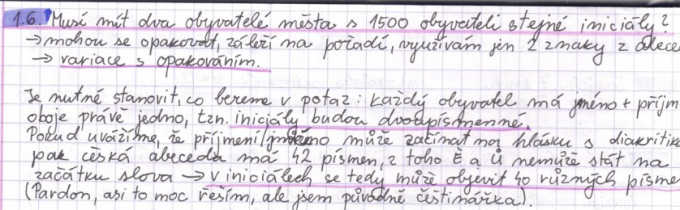 1.6. Musí mít dva obyvatelé města s 1500 obyvateli stejné iniciály?
→ mohou se opakovat, záleží na pořadí, využívám jen 2 znaky z abece
→ variace s opakováním.
Je nutné stanovit, co bereme v potaz: každý obyvatel má jméno + příjm
oboje právě jedno, tzn. iniciály budou dvoupísmenné.
Pokud uvážíme, že příjmení/jméno může začínat na hlásku s diakritik
pak česká abeceda má 42 písmen, z toho Ě a Ů nemůže stát na
začátku slova → v iniciálech se tedy může objevit 40 různých písme
(Pardon, asi to moc řeším, ale jsem původně češtinářka).